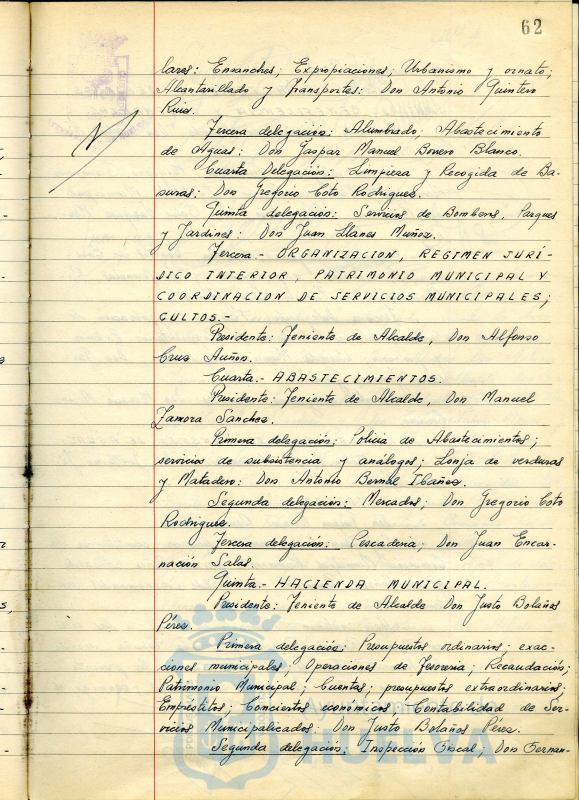 62
lares: Ensanches; Expropiaciones; Urbanismo y ornato;
Alcantarillado y Transportes: Don Antonio Quintero
Ruiz.
Tercera delegación: Alumbrado; Abastecimiento
de Aguas: Don Gaspar Manuel Borrero Blanco.
Cuarta Delegación: Limpieza y Recogida de Ba-
suras: Don Gregorio Coto Rodriguez.
Quinta delegación: Servicios de Bomberos, Parques
y Jardines: Don Juan Llanes Muñoz.
Tercera.- ORGANIZACION, REGIMEN JURÍ-
DICO INTERIOR, PATRIMONIO MUNICIPAL Y
COORDINACION DE SERVICIOS MUNICIPALES;
CULTOS.-
Presidente: Teniente de Alcalde, Don Alfonso
Cruz Auñon.
Cuarta.- ABASTECIMIENTOS.
Presidente: Teniente de Alcalde, Don Manuel
Zamora Sanchez.
Primera delegación: Policia de Abastecimientos;
servicios de subsistencia y análogos; Lonja de verduras
y Matadero: Don Antonio Bernal Ibañez.
Segunda delegación: Mercados; Don Gregorio Coto
Rodriguez.
Tercera delegación: Pescaderia; Don Juan Encar-
nación Salas.
Quinta.- HACIENDA MUNICIPAL.
Presidente: Teniente de Alcalde Don Justo Bolaños
Pérez.
Primera delegación: Presupuestos ordinarios; exac-
ciones municipales; Operaciones de Tesoreria; Recaudación;
Patrimonio Municipal; Cuentas; presupuestos extraordinarios;
Empréstitos; Conciertos económicos; Contabilidad de Ser-
vicios Municipalizados: Don Justo Bolaños Pérez.
Segunda delegación: Inspección Fiscal; Don Fernan-
HUELVA